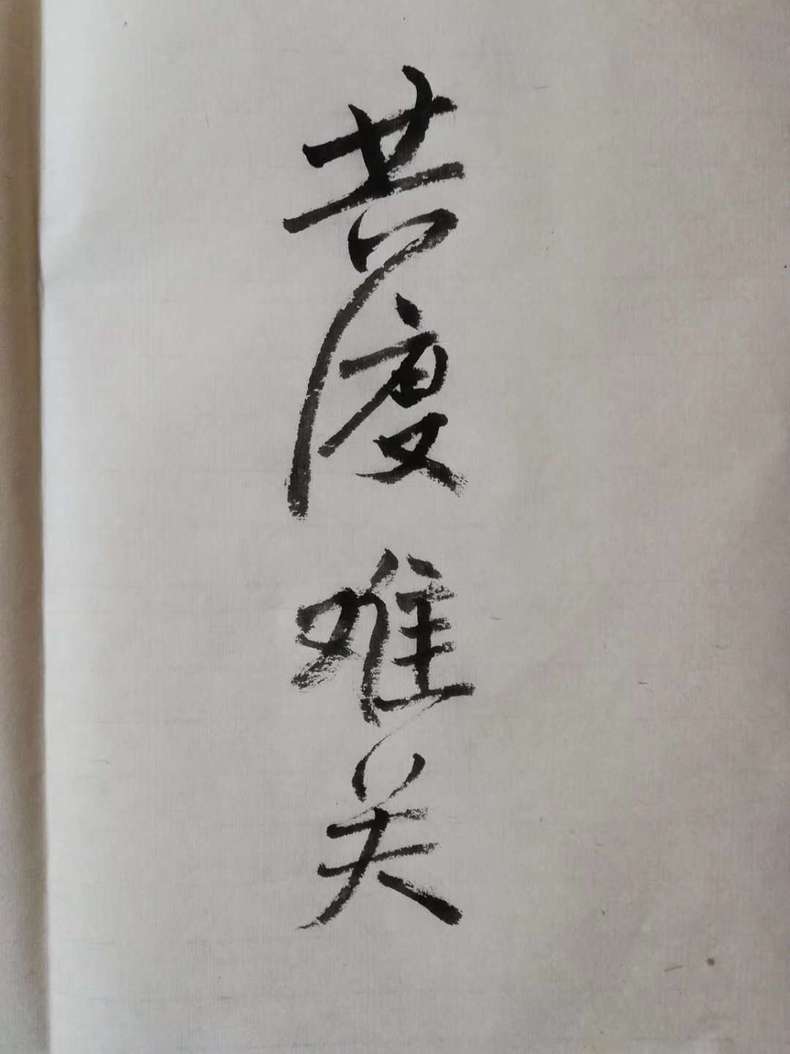 共度难关